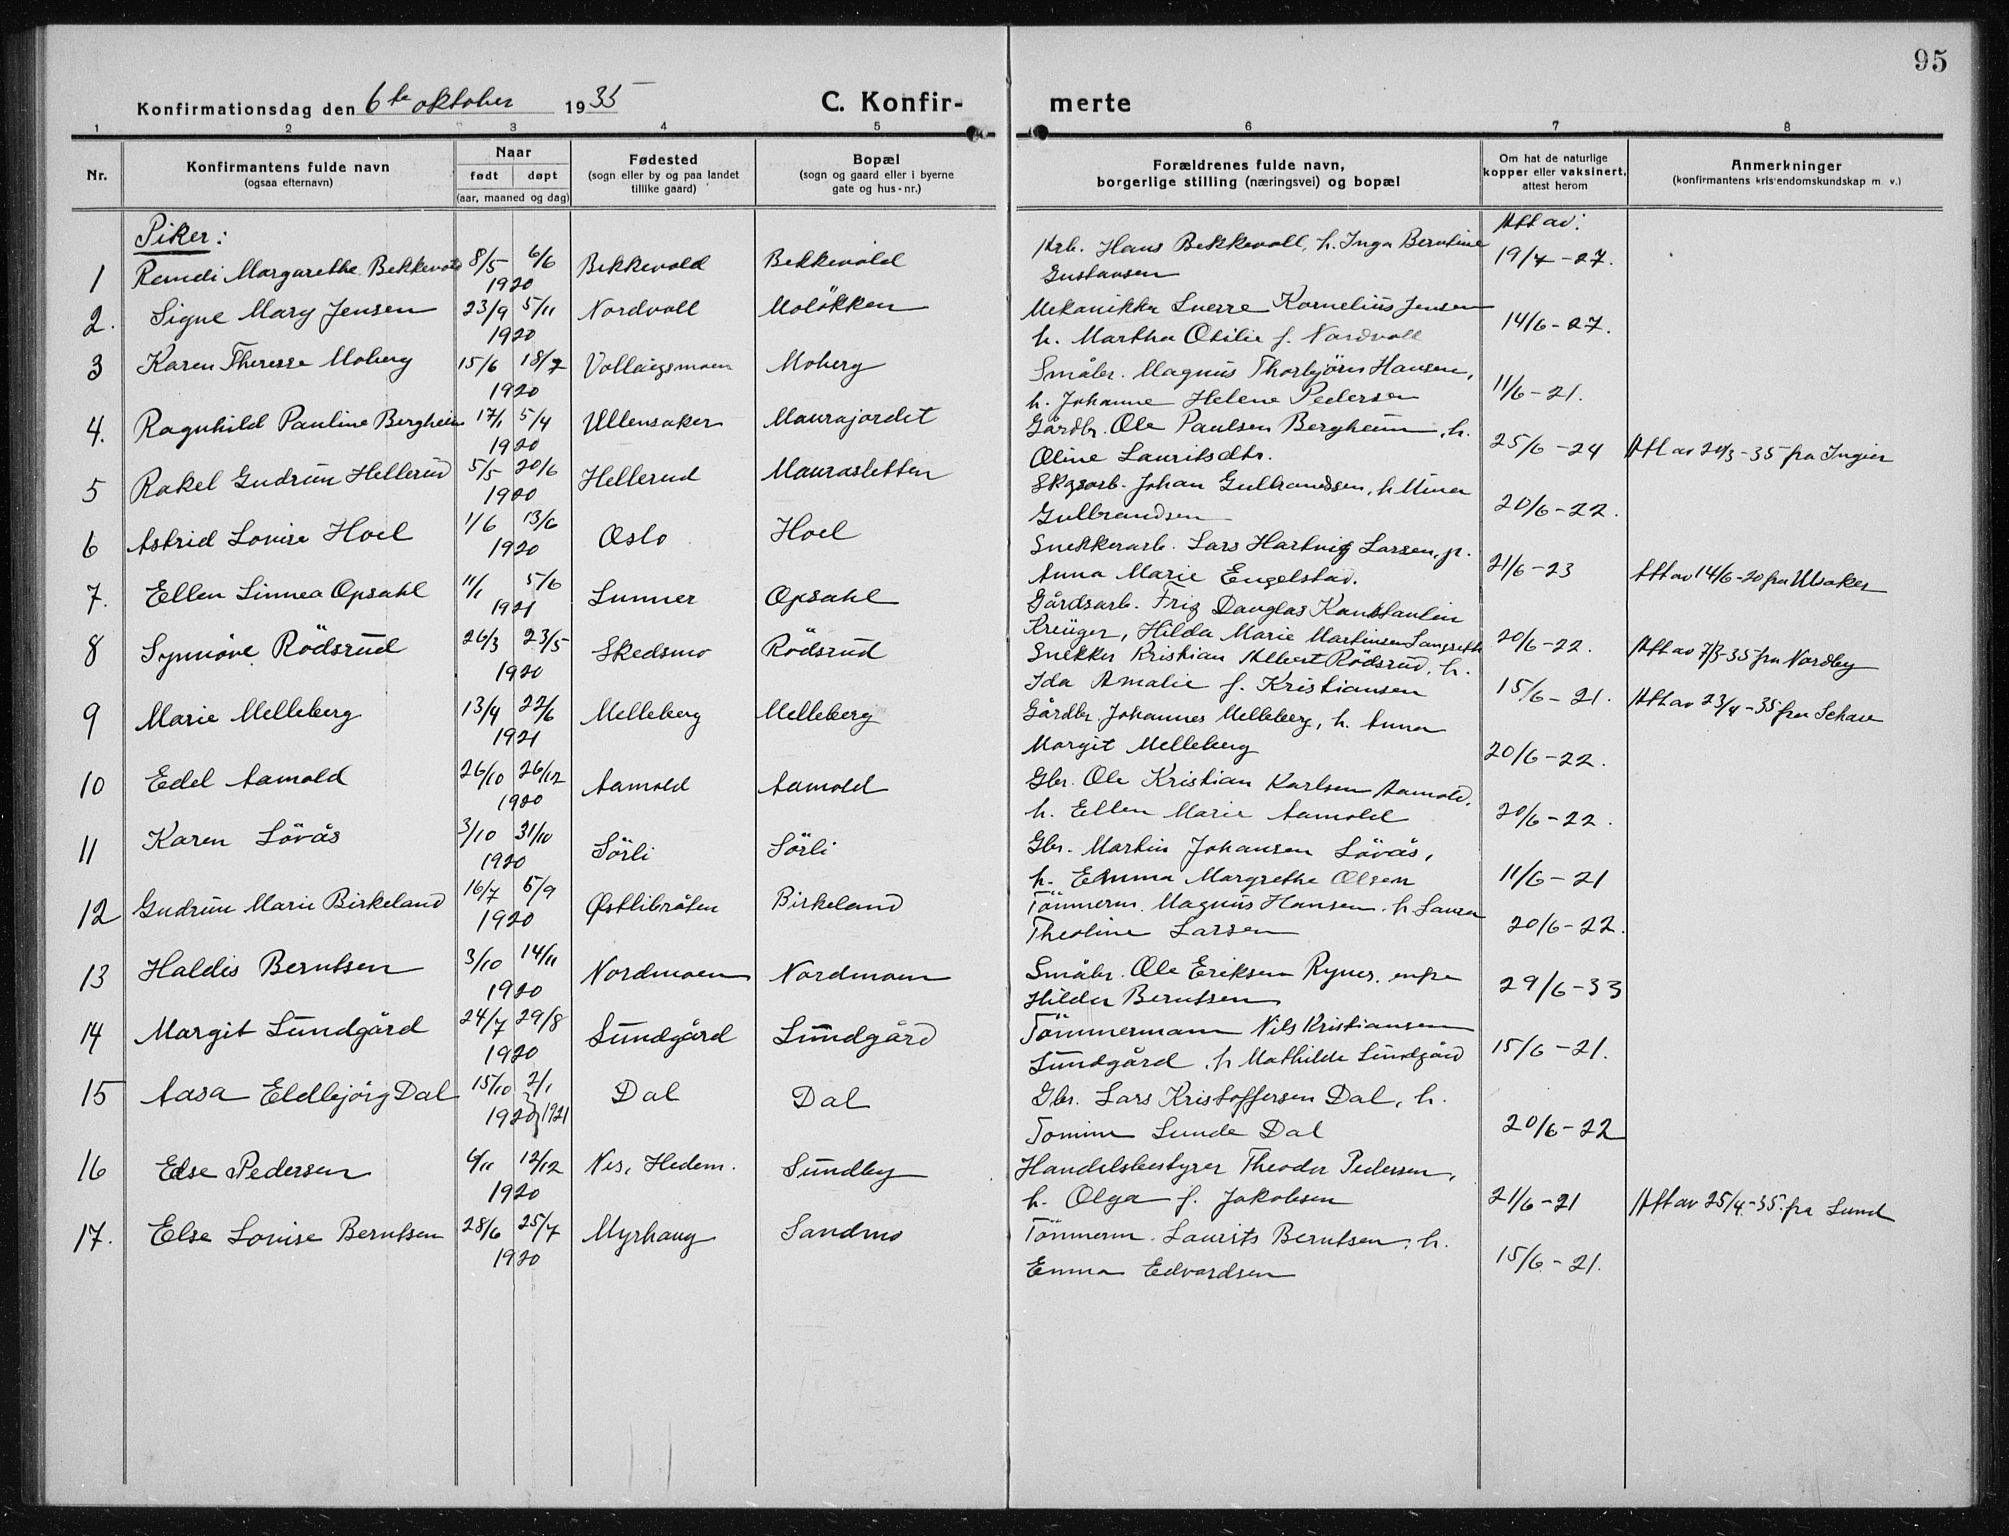 95
Konfirmationsdag den 6te oktober 1935 C. Konfir- merte
1 2 3 4 5 6 7 8
Nr. Konfirmantens fulde navn (ogsaa efternavn) Naar født døpt (aar, maaned og dag) Fødested (sogn eller by og paa landet tillike gaard) Bopæl (sogn og gaard eller i byerne gate og hus-nr.) Forældrenes fulde navn, borgerlige stilling (næringsvei) og bopæl Om hat de naturlige kopper eller vaksinert, attest herom Anmerkninger (konfirmantens kristendomskundskap m. v.)
Piker: Att av:
1 Remdi Margarethe Bekkevold 8/5 6/6 Bekkevold Bekkevold Arb. Hans Bekkevoll, h. Inga Berntine 19/7-27.
1920 Gustavsen
2. Signe Mary Jensen 23/9 5/11 Nordvoll Moløkken Mekaniker Sverre Kornelius Jensen
1920 h. Martha Otilie f. Nordvoll 14/6-27.
3 Karen Therese Moberg 15/6 18/7 Moberg Småbr. Magnus Thorbjörn Hansen,
1920 h. Johanne Helene Pedersen 11/6-21.
4. Ragnhild Pauline Bergheim 17/1 5/4 Ullensaker Maurajordet Gårdbr. Ole Paulsen Bergheim, h.
1920 Oline Lauritsdtr. 25/6-24 Att av 20/3-35 fra Ingier
5 Rakel Gudrun Hellerud 5/5 20/6 Hellerud Maurasletten Skogsarb. Johan Gulbrandsen, h Mina
1920 Gulbrandsen 20/6-22.
6 Astrid Lovise Hoel 1/6 13/6 Oslo Hoel Snekkerarb. Lars Hartvig Larsen,
1920 Anna Marie Engelstad. 21/6-23 Att av 14/6-20 fra Ulsaker
7. Ellen Linnea Opsahl 11/1 5/6 Lunner Opsahl Gårdsarb. Frig Dauglas Konstantin
1921 Kreüger, Hilda Marie Martinsen 20/6-22. Att av 7/3-35 fra Nordby
8 Synnöve Rödsrud 26/3 23/5 Skedsmo Rödsrud Snekker Kristian Albert Rödsrud, h.
1920 Ida Amalie f. Kristiansen 15/6-21. Att av 23/4-35 fra
9 Marie Melleberg 13/4 22/6 Melleberg Melleberg Gårdbr Johannes Melleberg, h. Anna
1921 Margit Melleberg 20/6-22.
10 Edel Aamold 26/10 26/12 Aamold Aamold Gbr. Ole Kristian Karlsen Aamold,
1920 h. Ellen Marie Aamold 20/6-22.
11 Karen Lövås 3/10 31/10 Sörli Sörli Gbr. Martin Johansen Lövås,
1920 h. Emma Margrethe Olsen 11/6-21
12 Gudrun Marie Birkeland 16/7 5/9 Østlibråten Birkeland Tömmerm. Magnus Hansen, h Laura
1920 Theoline Larsen 20/6-22.
13 Haldis Berntsen 3/10 14/11 Nordmoen Nordmoen Småbr. Ole Eriksen Rynes,
1920 Hilda Berntsen 29/6-33
14 Margit Sundgård 24/7 29/8 Sundgård Sundgård Tömmermann Nils Kristiansen
1920 Sundgård, h Mathilde Sundgård 15/6-21.
15 Aasa Eldbjörg Dal 15/10 2/1 Dal Dal Gbr. Lars Kristoffersen Dal, h.
1920 1921 Tomine Lunde Dal 20/6-22
16 Else Pedersen 6/11 12/12 Nes, Hedem. Sundby Handelsbestyrer Theodor Pedersen,
1920 h. Olga f. Jakobsen 21/6-21 Att av 25/4-35 fra Lund
17. Else Lovise Berntsen 28/6 25/7 Myrhaug Sandmo Tömmerm. Laurits Berntsen, h.
1920 Emma Edvardsen 15/6-21.